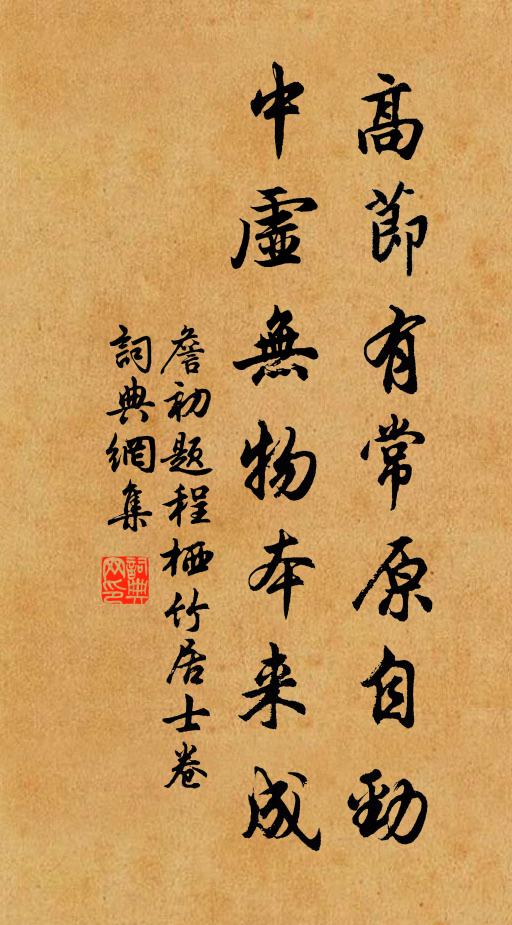 高節有常原自勁
中虛無物本来成
詹初題程栖竹居士卷
詞典網集
詞典網印